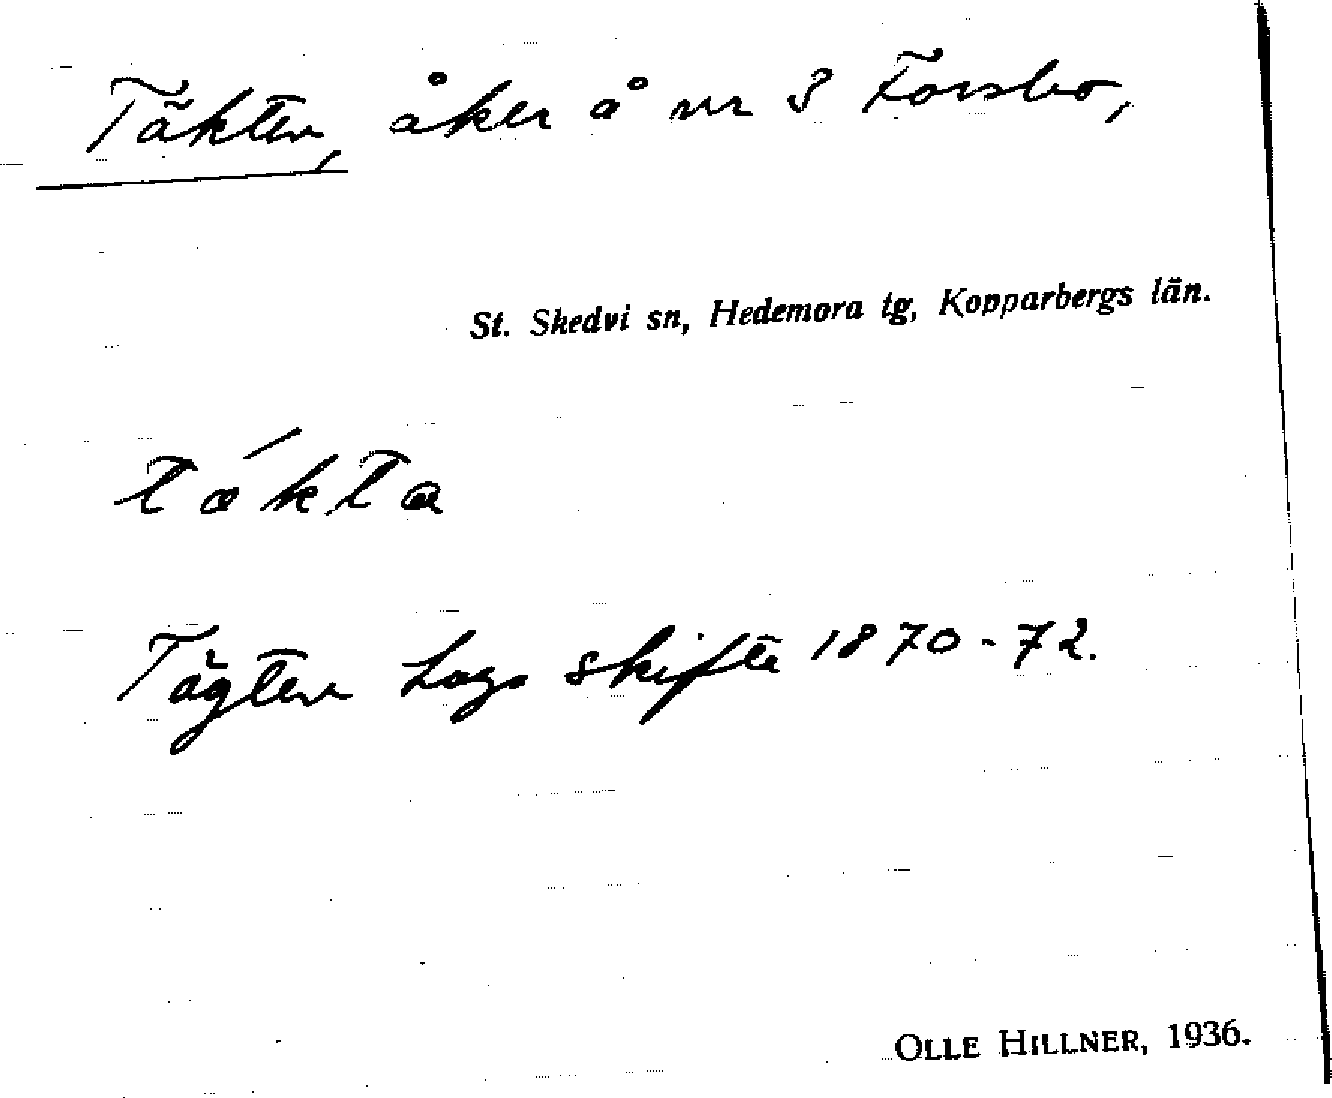 Täkten, åker å nr 8 Forsbo,
St. Skedvi sn, Hedemora tg, Kopparbergs län.
tǽkta
Tägten Laga skifte 1870-72.
OLLE HILLNER, 1936.